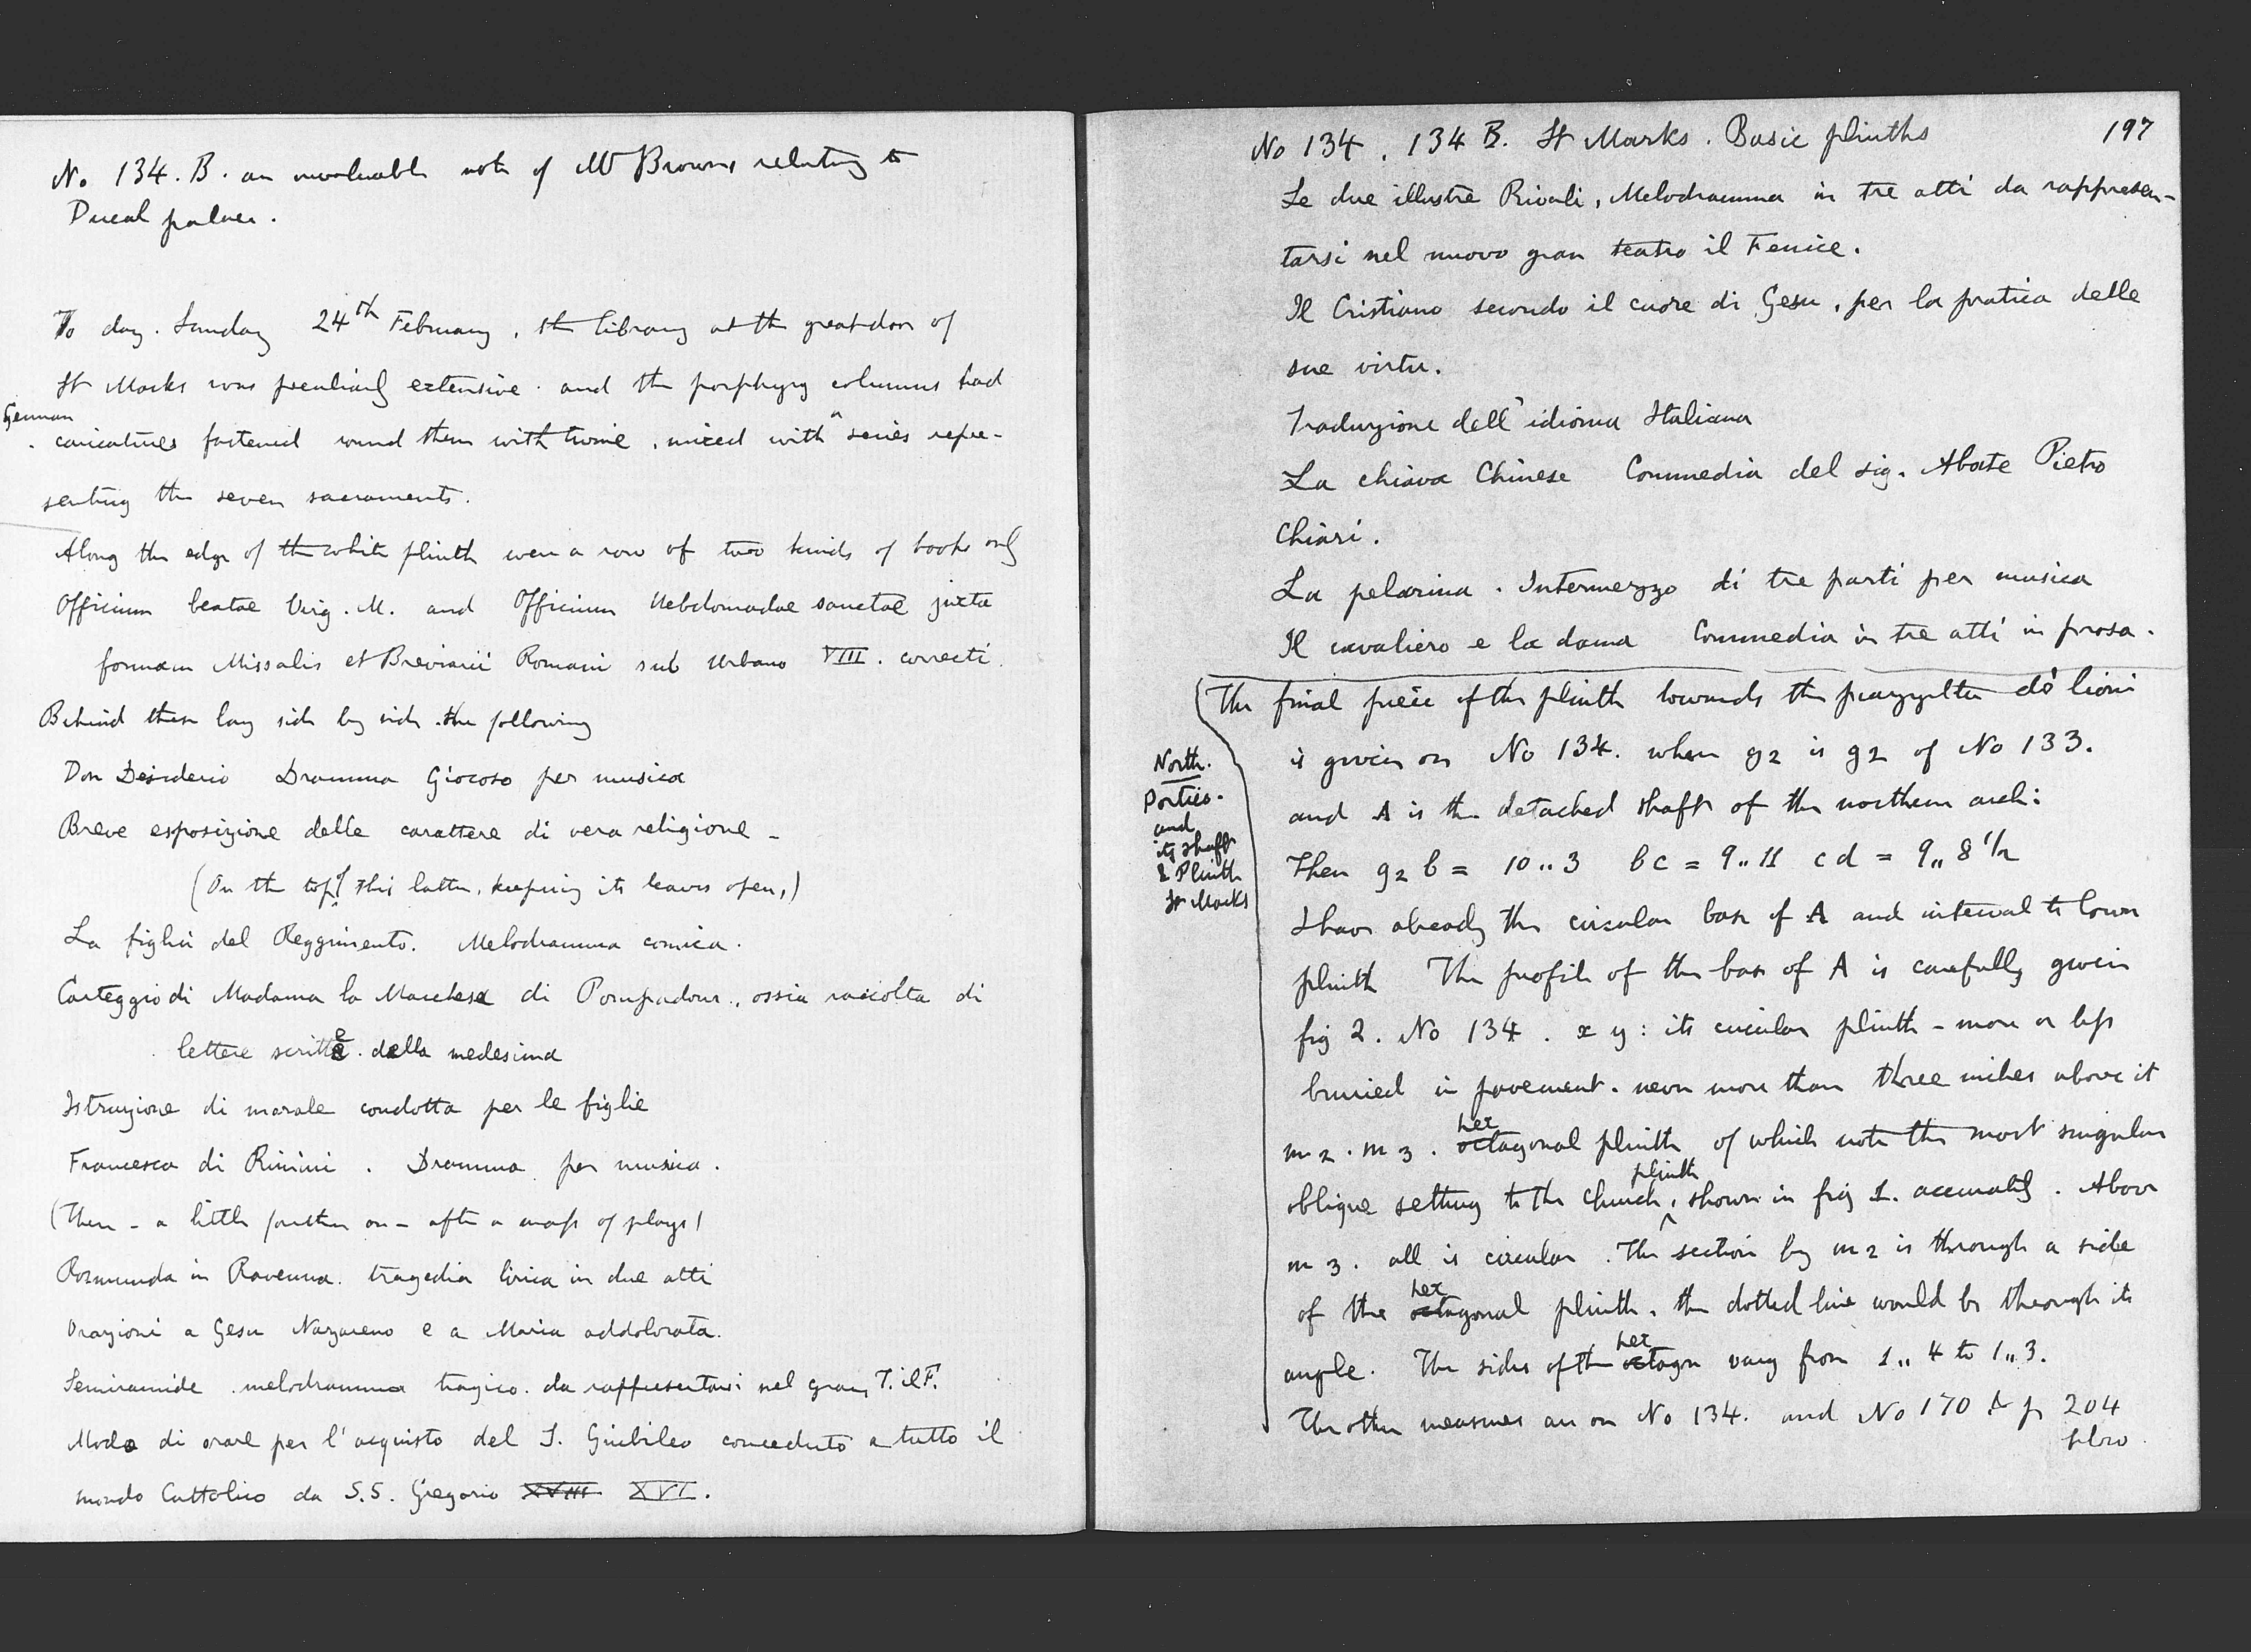 No 134. B. an invaluable note of Mr Browns relating to
Ducal palace.
To day. Sunday 24th February, the library at the great door of
St Marks was peculiarly extensive. and the porphyry columns had
German
caricatures fastened round them with twine, mixed with a series repre-
senting the seven sacraments.
Along the edge of the white plinth were a row of two kinds of books only
Officium beatae Virg. M. and Officium Hebdomadae sanctae juxta
formam Missalis et Breviarii Romani sub Urbano VIII. correcti.
Behind these lay side by side the following
Don Desiderio Dramma Giocoso per musica
Breve esposizione delle carattere di vera religione -
(On the top of this latter, keeping its leaves open,)
La figlia del Reggimento. Melodramma comica.
Carteggio di Madama la Marchesa di Pompadour., ossia raccolta di
lettere scritte della medesima
Istruzione di morale condotta per le figlie
Francesca di Rimini. Dramma per musica.
(Then - a little further on - after a mass of plays)
Rosmunda in Ravenna. tragedia lirica in due atti
Orazioni a Gesu Nazareno e a Maria addolorata.
Semiramide melodramma tragico. da rappresentarsi nel gran T. il F.
Modo di orare per l'acquisto del S. Giubileo conceduto a tutto il
mondo Cattolico da S.S. Gregorio XVIII XVI.
No 134. 134 B. St Marks. Basic plinths 197
Le due illustre Rivali, Melodramma in tre atti da rappresen-
tarsi nel nuovo gran teatro il Fenice.
Il Cristiano secondo il cuore di Gesu, per la pratica delle
sue virtu.
Traduzione dell' idioma Italiana
La chiava Chinese Commedia del sig. Abate Pietro
Chiari.
La pelarina. Intermezzo di tre parti per musica
Il cavaliero e la dama Commedia in tre atti in prosa.
The final piece of the plinth towards the piazzetta do' lioni
is given on No 134. when g2 is g2 of No 133.
and A is the detached shaft of the northern arch:
Then g2 b = 10..3 bc = 9..11 cd = 9,, 8 1/2
North.
Portico.
and
its shaft
& Plinth
St Marks
I have already the circular base of A and interval to lower
plinth The profile of the base of A is carefully given
fig 2. No 134. x y: its circular plinth - more or less
buried in pavement. never more than three inches above it
m2. m3. hex octagonal plinth of which note the most singular
oblique setting to the church plinth, shown in fig 1. accurately. Above
m3. all is circular. The section by m2 is through a side
of the hex octagonal plinth. the dotted line would be through its
angle. The sides of the hex octagon vary from 1,, 4 to 1,, 3.
The other measures are on No 134. and No 170 & p 204